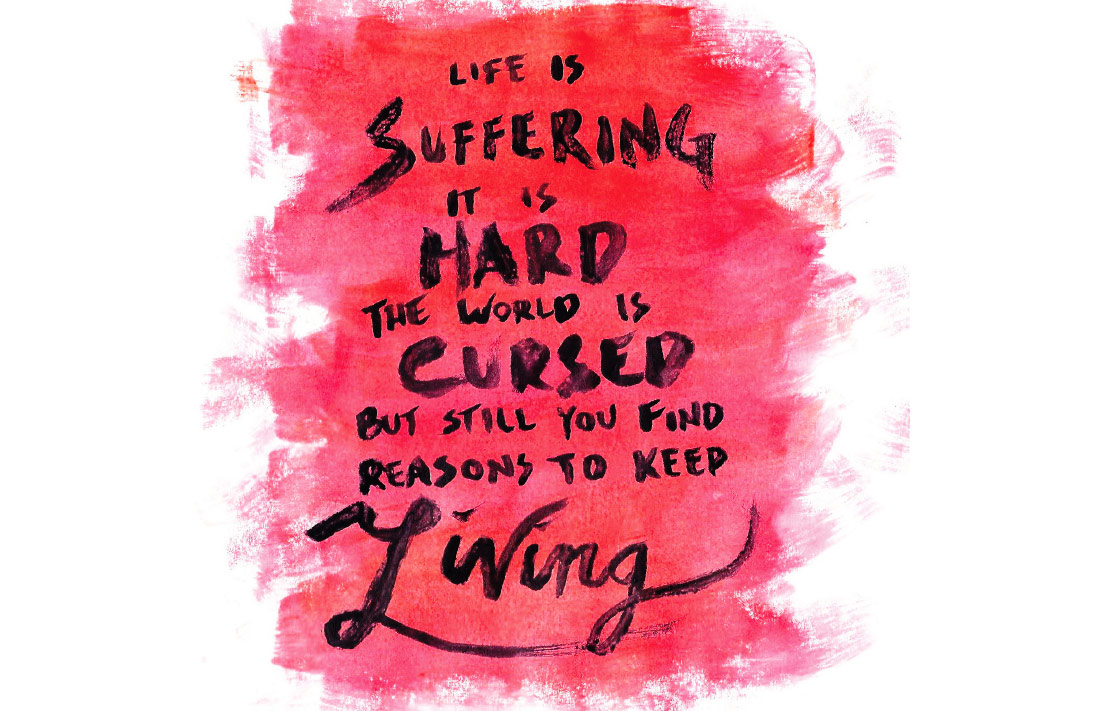 LIFE IS
SUFFERING
IT IS
HARD
THE WORLD IS
CURSED
BUT STILL YOU FIND
REASONS TO KEEP
Living